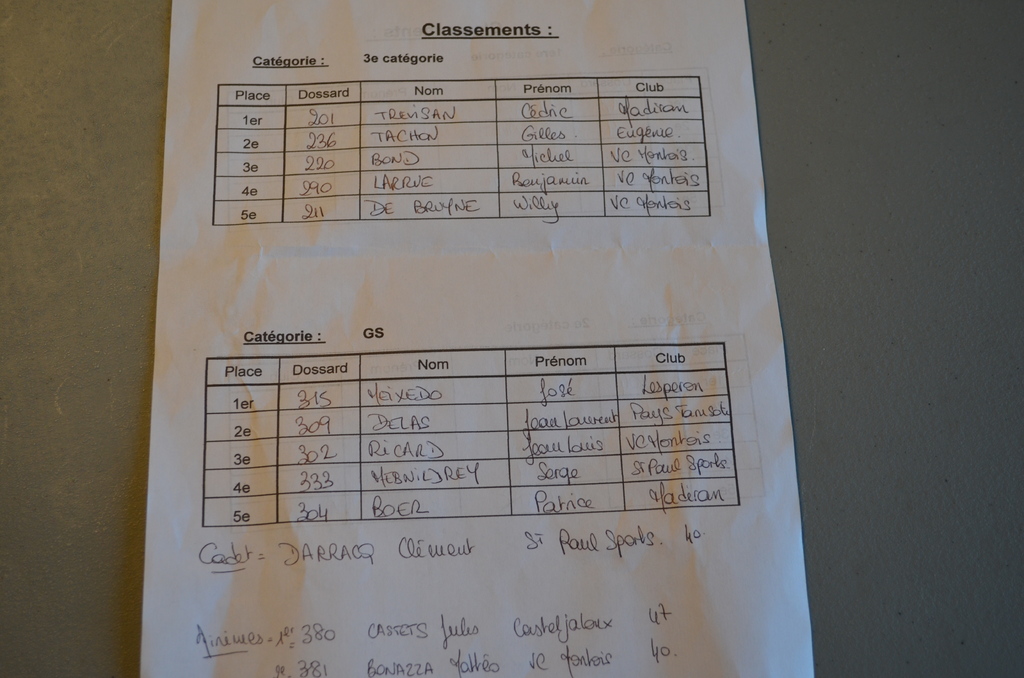 Classements :
Catégorie : 3e catégorie
Place Dossard Nom Prénom Club
1er 201 TREVISAN Cédric Madiran
2e 236 TACHON Gilles. Eugénie.
3e 220 BOND Michel VC Montois.
4e 290 LARRUE Benjamin VC Montois
5e 211 DE BRUYNE Willy VC Montois
Catégorie : GS
Place Dossard Nom Prénom Club
1er 315 MEIXEDO José Lesperon
2e 309 DELAS Jean Laurent Pays
3e 302 RICARD Jean Louis VC Montois
4e 333 Serge St Paul Sports.
5e 304 BOER Patrice Madiran
Cadet = DARRACQ Clément St Paul Sports. 40.
Minimes = 1er 380 CASTETS Jules Casteljaloux 47
2e 381 BONAZZA Mattéo VC Montois 40.